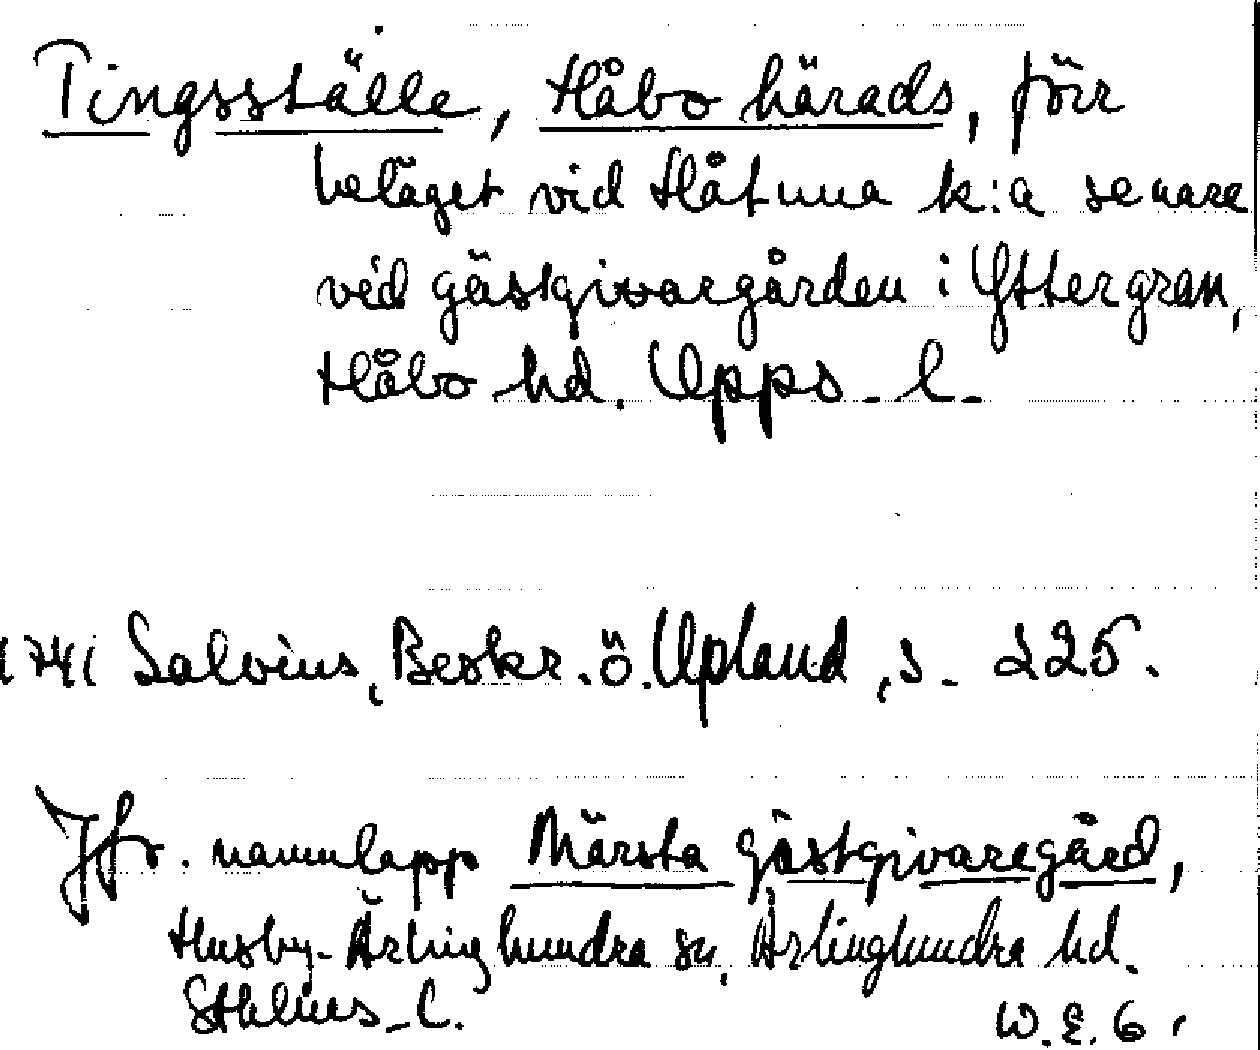 Tingsställe, Håbo härads, förr
beläget vid Håtuna k:a senare
vid gästgivargården i Yttergran,
Håbo hd. Upps. l.
1741 Salvius, Beskr. ö. Upland, s. 225.
Jfr. namnlapp Märsta gästgivaregård,
Husby-Ärlinghundra sn, Ärlinghundra hd.
Sthlms l.
W.E.G.